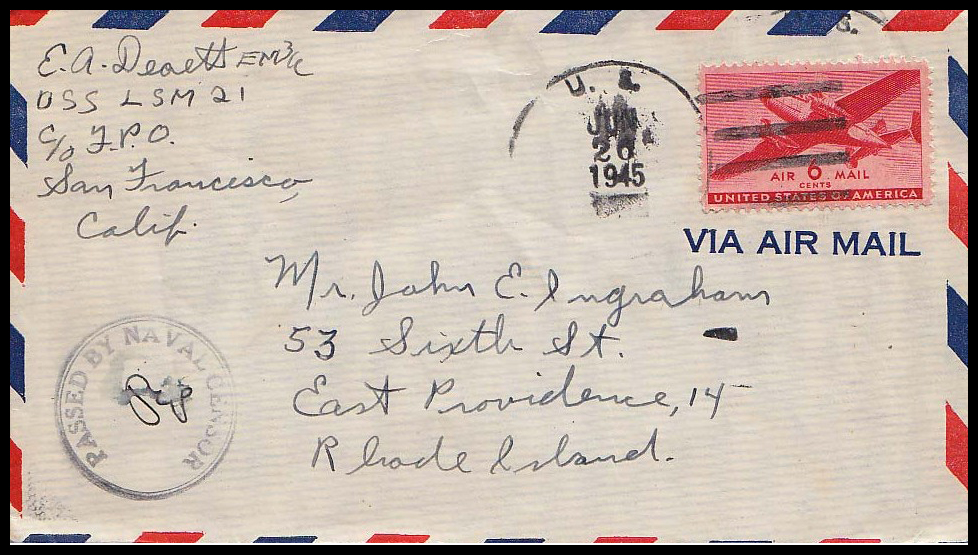 E. A. Deaett EM3/c
USS LSM 21
C/o F.P.O.
San Francisco,
Calif.
U. S.
JUN
20
1945
S.
AIR 6 MAIL
CENTS
UNITED STATES OF AMERICA
VIA AIR MAIL
Mr. John E. Ingraham
53 Sixth St.
East Providence, 14
Rhode Island.
PASSED BY NAVAL CENSOR